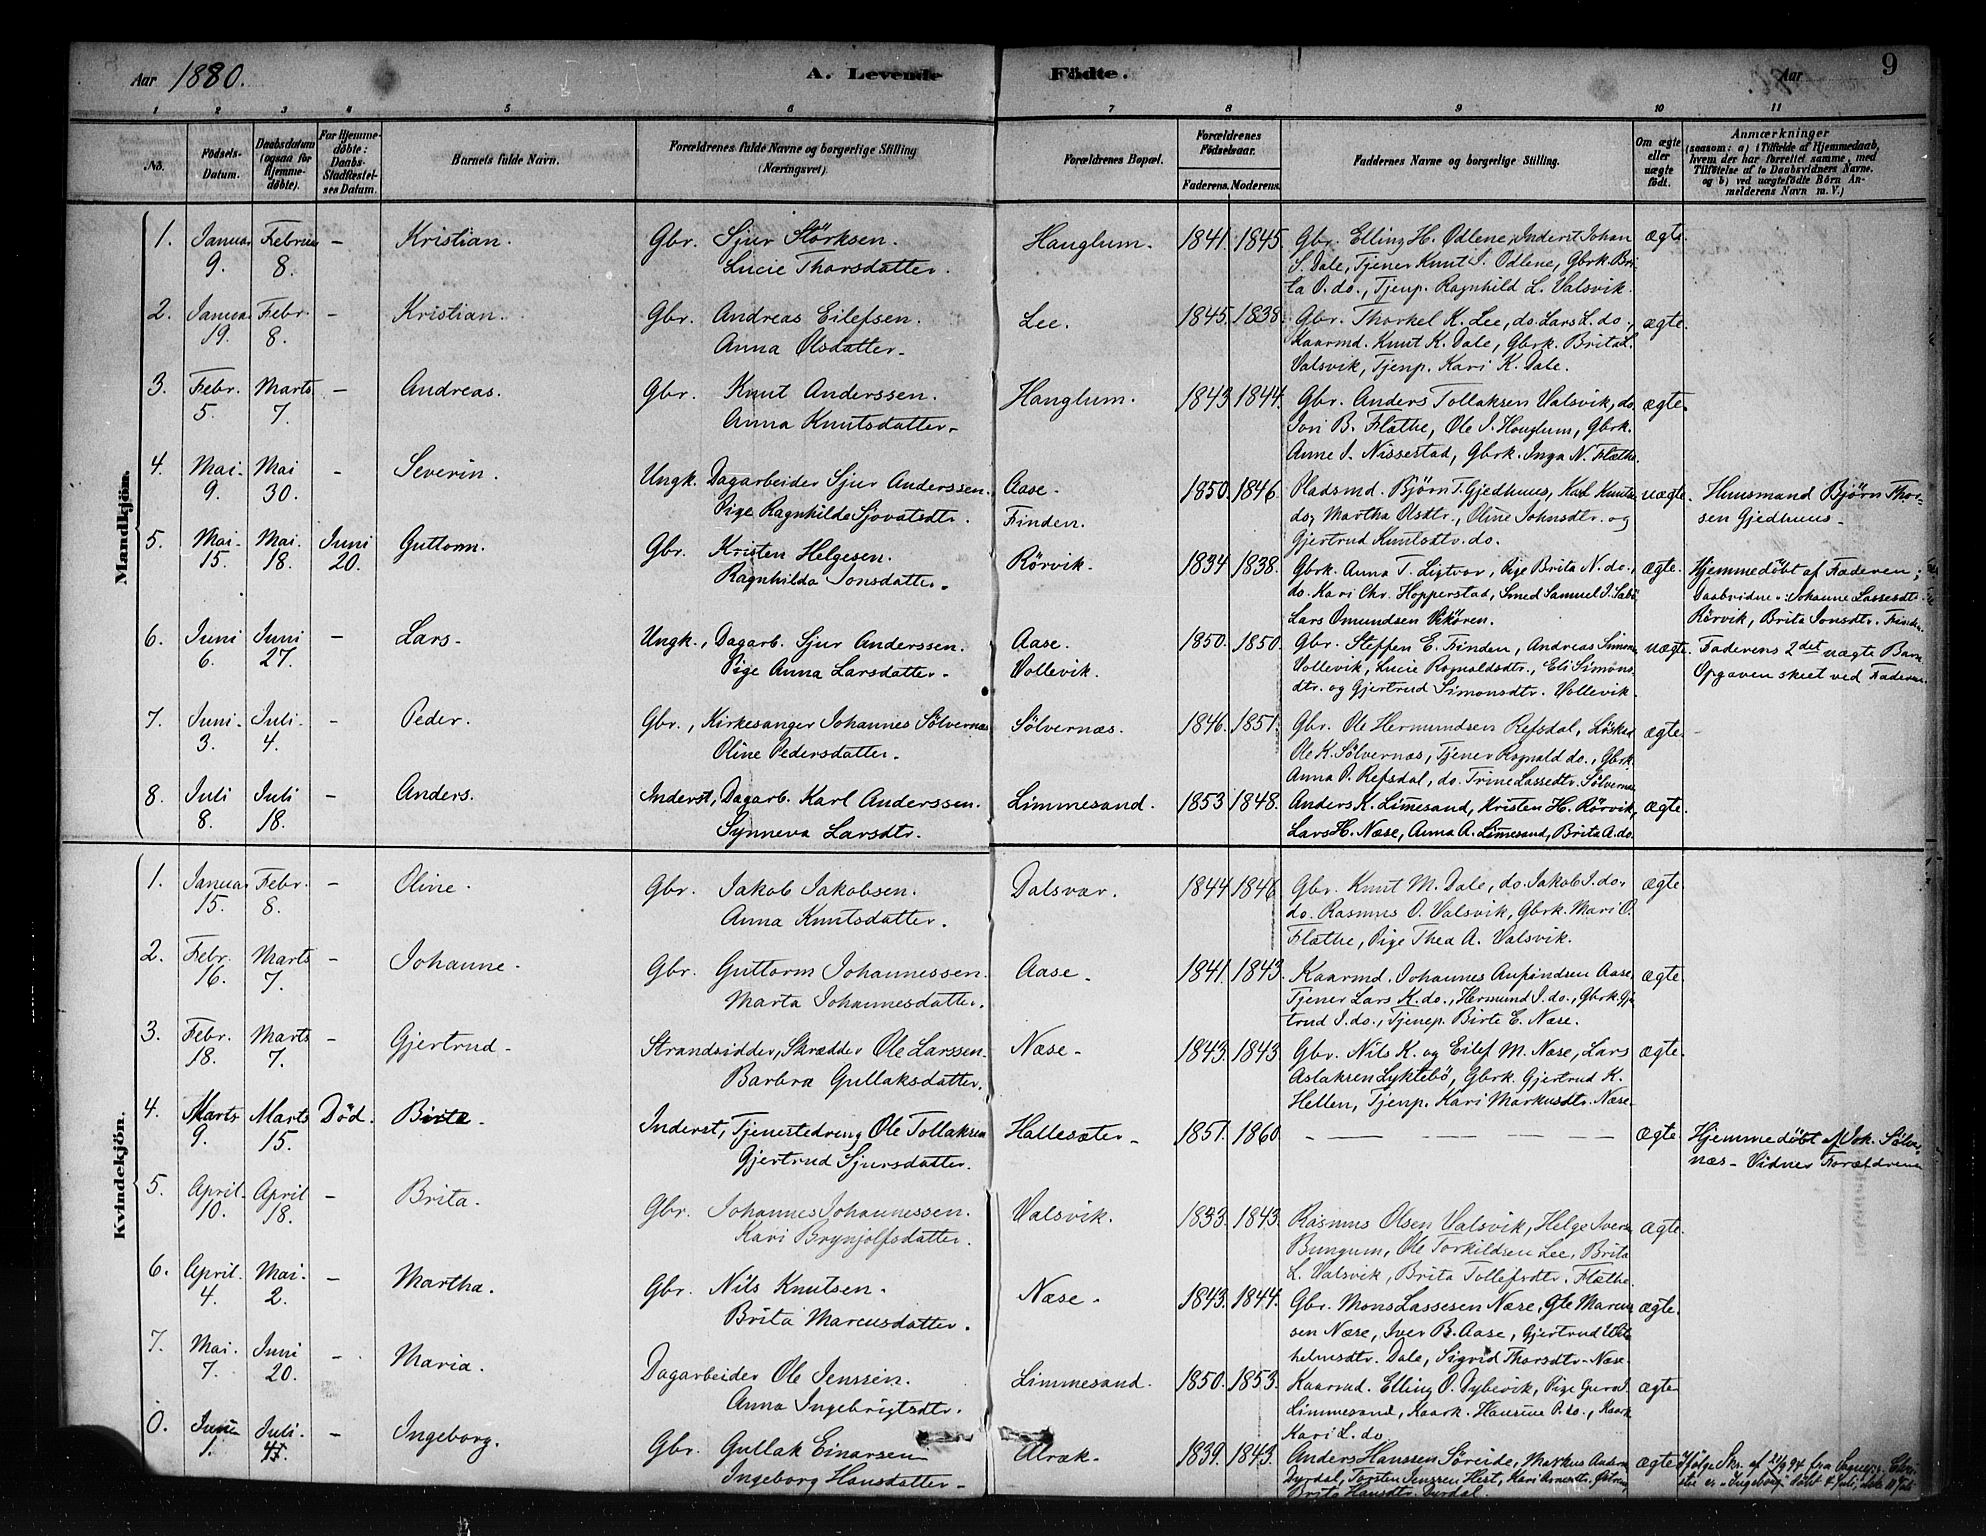 Aar 1880. A. Levende Fødte. Aar 9
1 2 3 4 5 6 7 8 9 10 11
No. Fødsels-Datum. Daabsdatum (ogsaa for Hjemmedøbte). For Hjemmedøbte: Daabs-Stadfæstelses Datum. Barnets fulde Navn. Forældrenes fulde Navne og borgerlige Stilling (Næringsvei). Forældrenes Bopæl. Forældrenes Fødselsaar. Faderens. Moderens. Faddernes Navne og borgerlige Stilling. Om ægte eller uægte født. Anmærkninger (saasom: a) i Tilfælde af Hjemmedaab, hvem der har forrettet samme, med Tilføielse af to Daabsvidners Navne. og b) ved uægtefødte Børn Anmelderens Navn m. V.)
Mandkjøn.
1. Januar Februar - Kristian. Gbr. Sjur Störksen. Hauglum. 1841. 1845. Gbr. Elling H. Ødlene, Inderst Johan ægte.
9. 8. Lucie Thorsdatter. S. Dale, Tjener Knut I. Ødlene, Gbrk. Bri-
ta O. do., Tjenp. Ragnhild L. Valsvik.
2. Januar Febr. - Kristian. Gbr. Andreas Eilefsen. Lee. 1845. 1838. Gbr. Thorkel K. Lee, do. Lars L. do., ægte.
19. 8. Anna Olsdatter. Kaarmd. Knut K. Dale, Gbrk. Brita L.
Valsvik, Tjenp. Kari K. Dale.
3. Febr. Marts - Andreas. Gbr. Knut Anderssen. Hauglum. 1843. 1844. Gbr. Anders Tollaksen Valsvik, do. ægte.
5. 7. Anna Knutsdatter. B. Flæthe, Ole I. Hauglum, Gbrk.
Anne I. Nissestad, Gbrk. Inga N. Flæthe.
4. Mai Mai - Severin. Ungk. Dagarbeider Sjur Anderssen. Aase. 1850. 1846. Pladsmd. Bjørn T. Gjedhuus, Karl Knuts uægte. Huusmand Bjørn Thor-
9. 30. Pige Ragnhilde Sjovatsdtr. Finden. do, Martha Olsdtr., Oline Johnsdtr. og sen Gjedhuus.
Gjertrud Knutsdtr. do.
5. Mai. Mai. Juni Guttorm. Gbr. Kristen Helgesen. Rörvik. 1834 1838. Gbrk. Anna T. Ligtvor, Pige Brita N. do., ægte. Hjemmedøbt af Faderen;
15. 18. 20. Ragnhilda Jonsdatter. do. Kari Chr. Hopperstad, Smed Samuel I. Daabvidner: Johanne Lassesdtr.
Lars Omundsen Vikøren. Rörvik, Brita Jonsdtr. Finden.
6. Juni Juni - Lars. Ungk., Dagarb. Sjur Anderssen. Aase. 1850. 1850. Gbr. Steffen E. Finden, Andreas Simons uægte. Faderens 2det uægte Barn.
6. 27. Pige Anna Larsdatter. Vollevik. Vollevik, Lucie Ragnaldsdtr., Eli Simons- Opgaven skeet ved Faderen.
dtr. og Gjertrud Simonsdtr. Vollevik.
7. Juni. Juli. - Peder. Gbr., Kirkesanger Johannes Sølvernæs Sølvernæs. 1846. 1851. Gbr. Ole Hermundsen Refsdal, Løskar ægte.
3. 4. Oline Pedersdatter. Ole K. Sølvernæs, Tjener Ragnald do., Gbrk.
Anna O. Refsdal, do. Trine Lassedtr. Sølvernæs
8. Juli Juli - Anders. Inderst, Dagarb. Karl Anderssen. Limmesand. 1853 1848. Anders K. Limesand, Kristen H. Rörvik, ægte.
8. 18. Synneva Larsdtr. Lars H. Næse, Anna A. Limesand, Brita A. do.
Kvindekjøn.
1. Januar Febr. - Oline. Gbr. Jakob Jakobsen. Dalsvær. 1844 1846 Gbr. Knut M. Dale, do. Jakob I. do, ægte.
15. 8. Anna Knutsdatter. do. Rasmus O. Valsvik, Gbrk. Mari O.
Flæthe, Pige Thea A. Valsvik.
2. Febr. Marts - Johanne. Gbr. Guttorm Johannessen. Aase. 1841. 1843. Kaarmd. Johannes Anfindsen Aase, ægte.
16. 7. Marta Johannesdatter. Tjener Lars K. do., Hermund I. do., Gbrk. Gjer-
trud I. do., Tjenp. Birte E. Næse.
3. Febr. Marts - Gjertrud. Strandsidder, Skrædder Ole Larssen. Næse. 1843. 1843 Gbr. Nils K. og Eilef M. Næse, Lars ægte.
18. 7. Barbra Gullaksdatter. Aslaksen Lyktebø, Gbrk. Gjertrud K.
Hellen, Tjenp. Kari Markusdtr. Næse.
4. Marts Marts Død. Birte. Inderst, Tjenestedreng Ole Tollaksen Hallesæter. 1851. 1860. - - - - - ægte. Hjemmedøbt af Joh. Sølver-
9. 15. Gjertrud Sjursdatter. næs - Vidner Forældrene
5. April April - Brita. Gbr. Johannes Johannessen. Valsvik. 1833. 1843. Rasmus Olsen Valsvik, Helge Ivers ægte.
10. 18. Kari Brynjolfsdatter. Bungum, Ole Torkildsen Lee, Brita
L. Valsvik, Brita Tollefsdtr. Flæthe.
6. April. Mai. - Martha. Gbr. Nils Knutsen. Næse. 1843. 1844. Gbr. Mons Lassesen Næse, Marcus- ægte.
4. 2. Brita Marcusdatter. sen Næse, Iver B. Aase, Gjertrud Wil-
helmsdtr. Dale, Sigrid Thorsdtr. Næse.
7. Mai. Juni - Maria. Dagarbeider Ole Jenssen. Limmesand. 1850. 1853. Kaarmd. Elling O. Dybevik, Pige Guro I. ægte
7. 20. Anna Ingebrigtsdtr. Limmesand, Kaark. Hansine P. do., Kaark
Kari L. do
Juni Juli. - Ingeborg. Gbr. Gullak Einarsen Alræk. 1839. 1843. Anders Hanssen Søreide, Markus ægte Ifølge Skr. af 21/9 94 fra Sognepr.
1. 4. Ingeborg Hansdatter. Dyrdal, Torsten Jenssen Hest, Kari er "Ingeborg" døbt 4 Juli, ikke
Brita Hansdtr. Dyrdal.